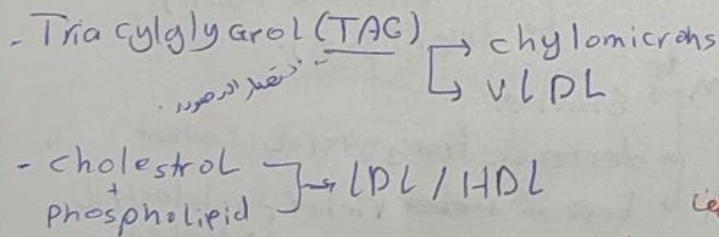 - Triacylglyarol (TAG) → chylomicrons
↳ VLDL
- cholestrol
+
phospholipid } → LDL / HDL